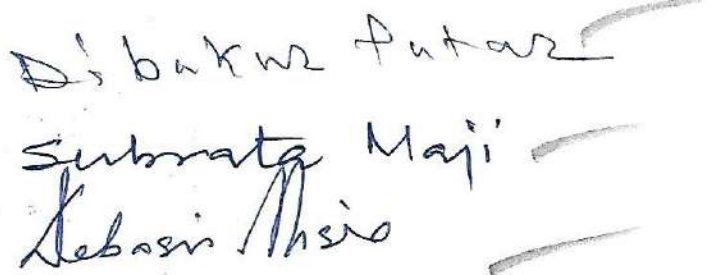 Dibakur Patar
Subrata Maji
Debasis